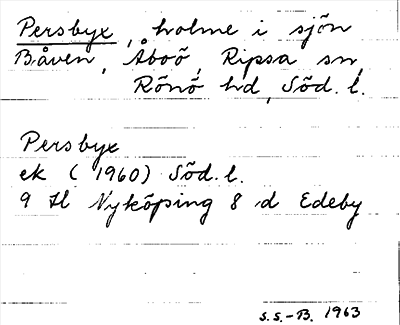 Persbyx, holme i sjön
Båven, Åboö, Ripsa sn,
Rönö hd, Söd. l.
Persbyx
ek (1960) Söd. l.
9 H Nyköping 8 d Edeby
S.S.-B. 1963